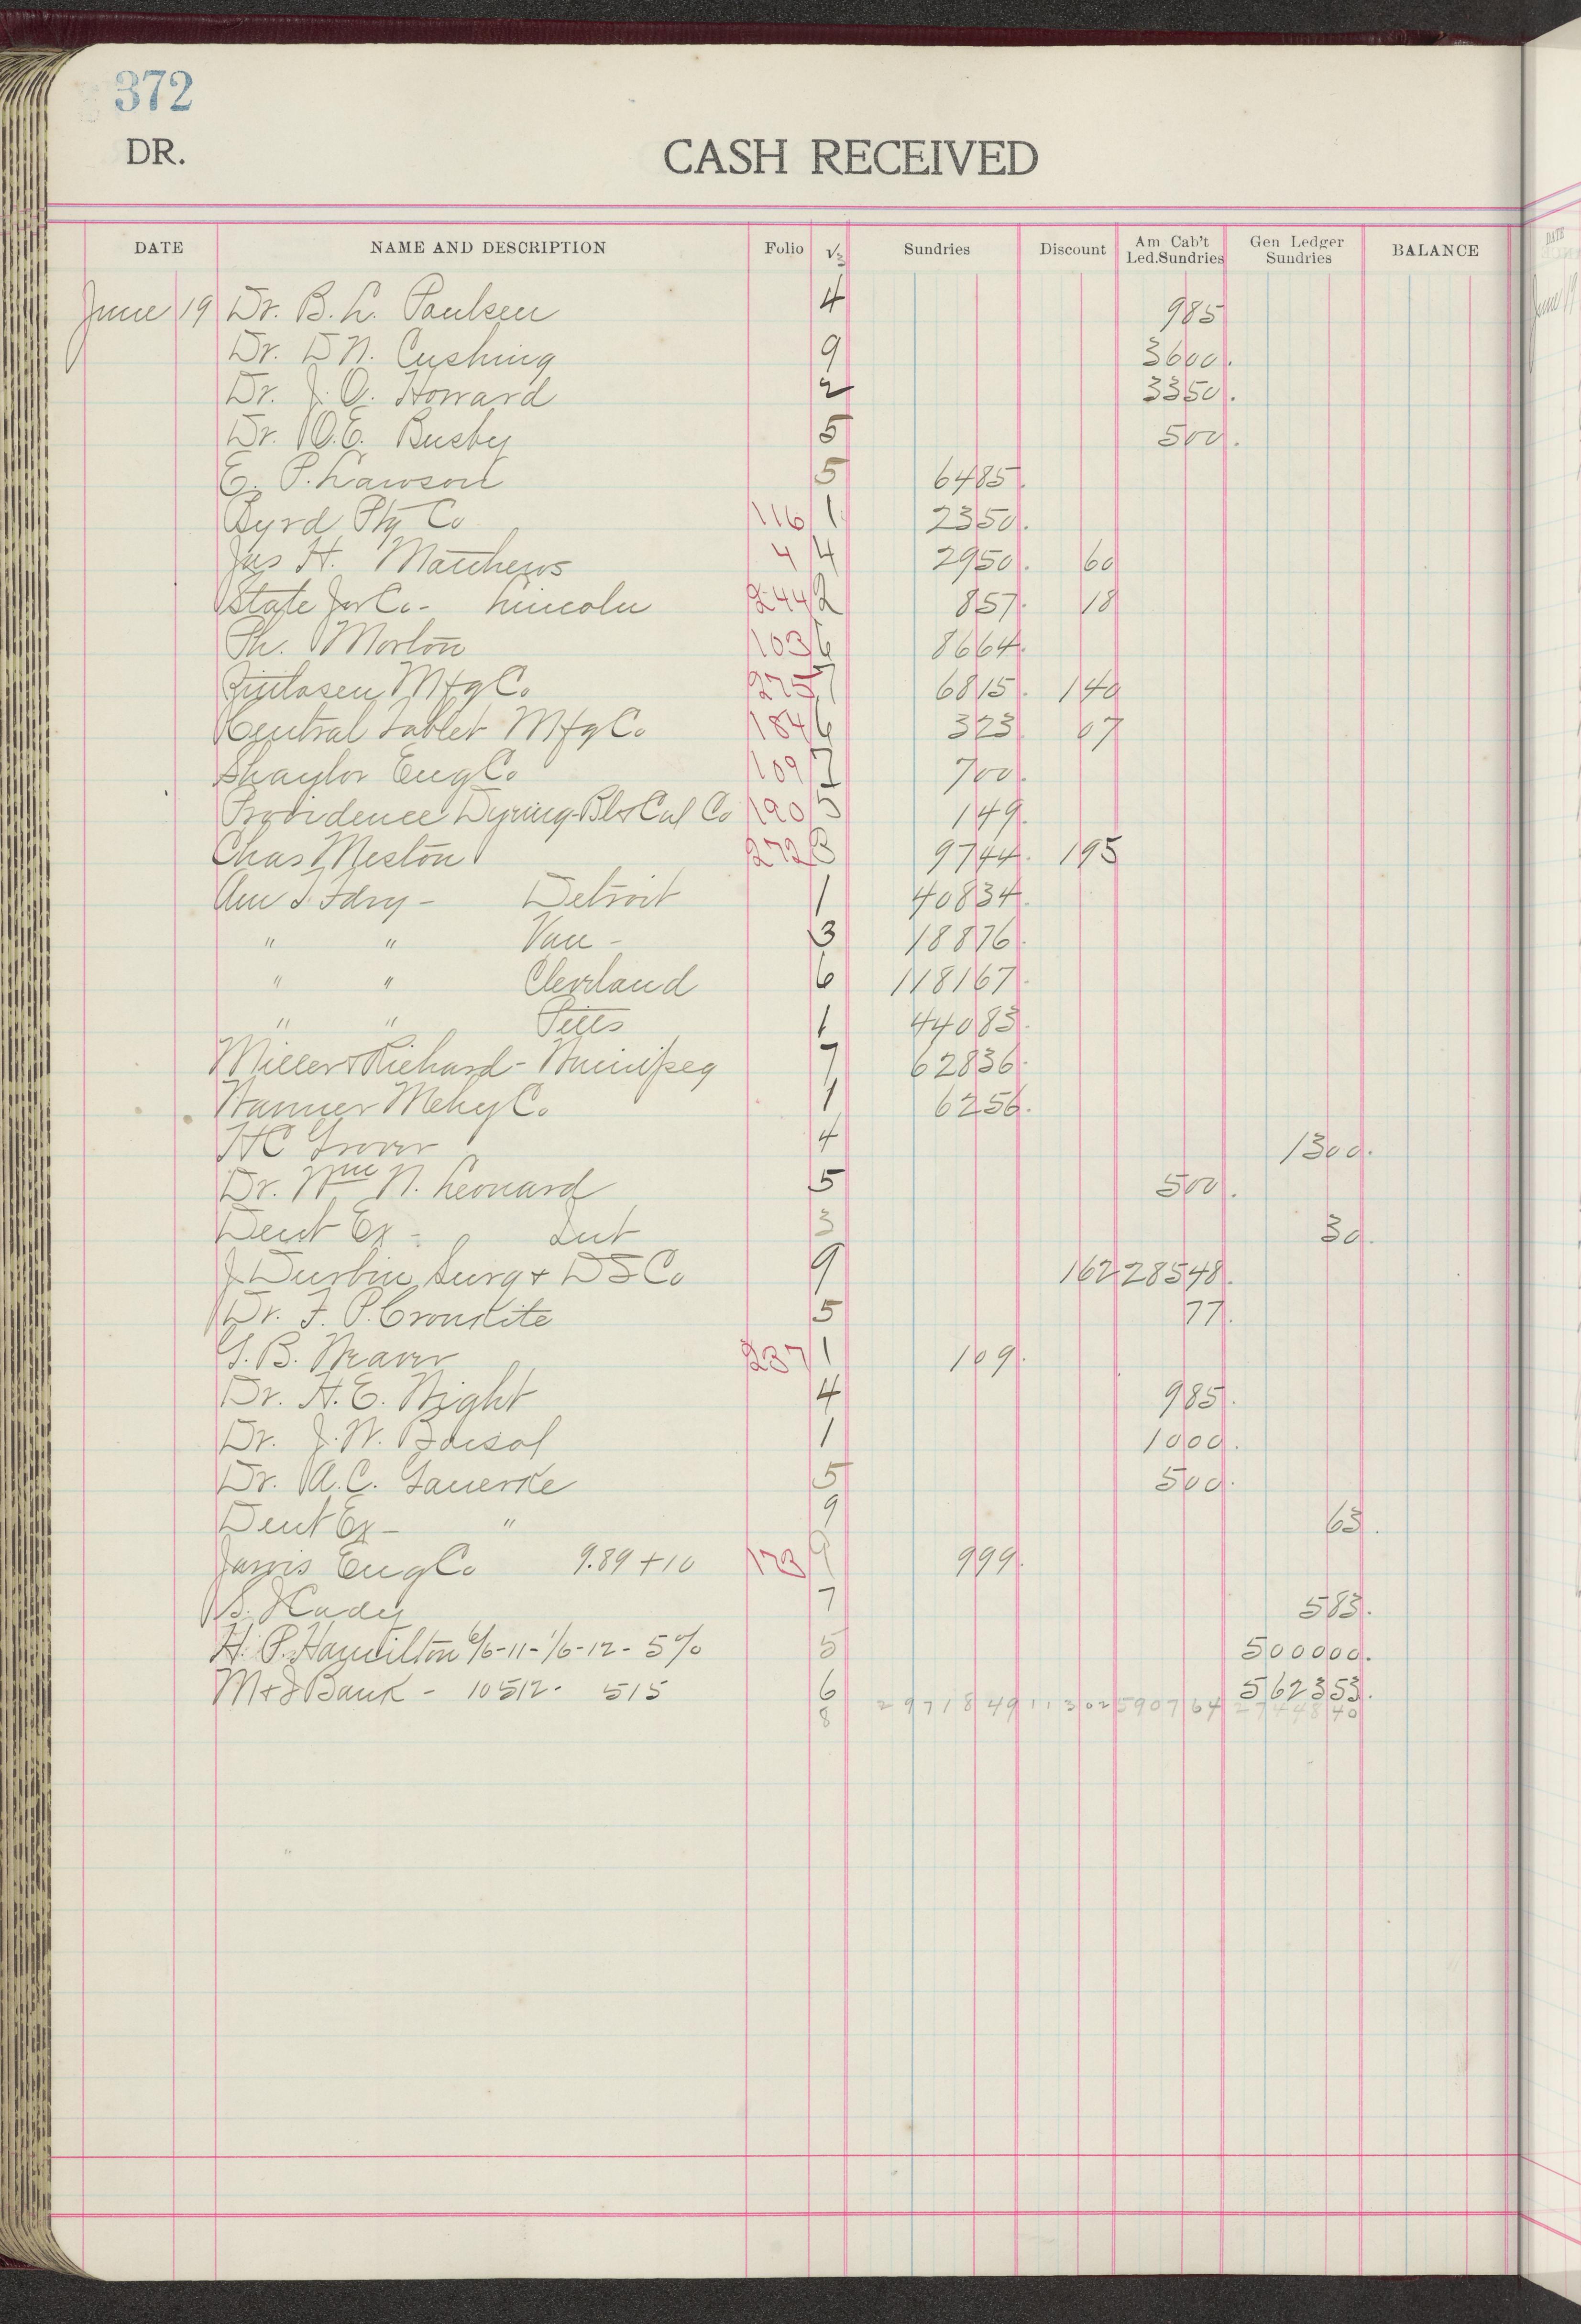 372
DR.
CASH RECEIVED
DATE NAME AND DESCRIPTION Folio √s Sundries Discount Am Cab't Led.Sundries Gen Ledger Sundries BALANCE
June 19 Dr. B. L. Paulsen 4 985
Dr. D N. Cushing 9 3600.
Dr. J. O. Howard 2 3350.
Dr. O.E. Busby 5 500.
E. P. Lawson 5 6485.
Byrd Ptg Co 116 1 2350.
Jas H. Matthews 4 4 2950. 60
State Jor Co - Lincoln 244 2 857. 18
Ph. Morton 103 6 8664.
Mfg Co. 275 7 6815. 140
Central Tablet Mfg Co 184 6 323. 07
Shaylor Eng Co 109 7 700.
Providence Dyeing Bl & Cal Co 190 5 149.
Chas Meston 272 3 9744. 195
Am T. Fdry - Detroit 1 40834.
" " Van - 3 18876.
" " Cleveland 6 118167.
" " Pitts 1 44083.
Miller & Richard - Winnipeg 7 62836.
Wanner Mchy Co. 1 6256.
H C Grover 4 1300.
Dr. Wm N. Leonard 5 500.
Dent Ex - Int 3 30.
J Durbin Surg & D S Co 9 162 28548.
Dr. F. P. Cronkite 5 77.
G. B. Weaver 237 1 109.
Dr. H. E. Wight 4 985.
Dr. J. W. 1 1000.
Dr. A. C. Gauerke 5 500.
Dent Ex - " 9 63.
Jarvis Eng Co 9.89 + 10 173 9 999.
S. J Cady 7 583.
H. P. Hamilton 6/6-11-1/6-12- 5% 5 500000.
M & J Bank - 10512 - 515 6 562353.
8 2971849 11302 590764 2744840